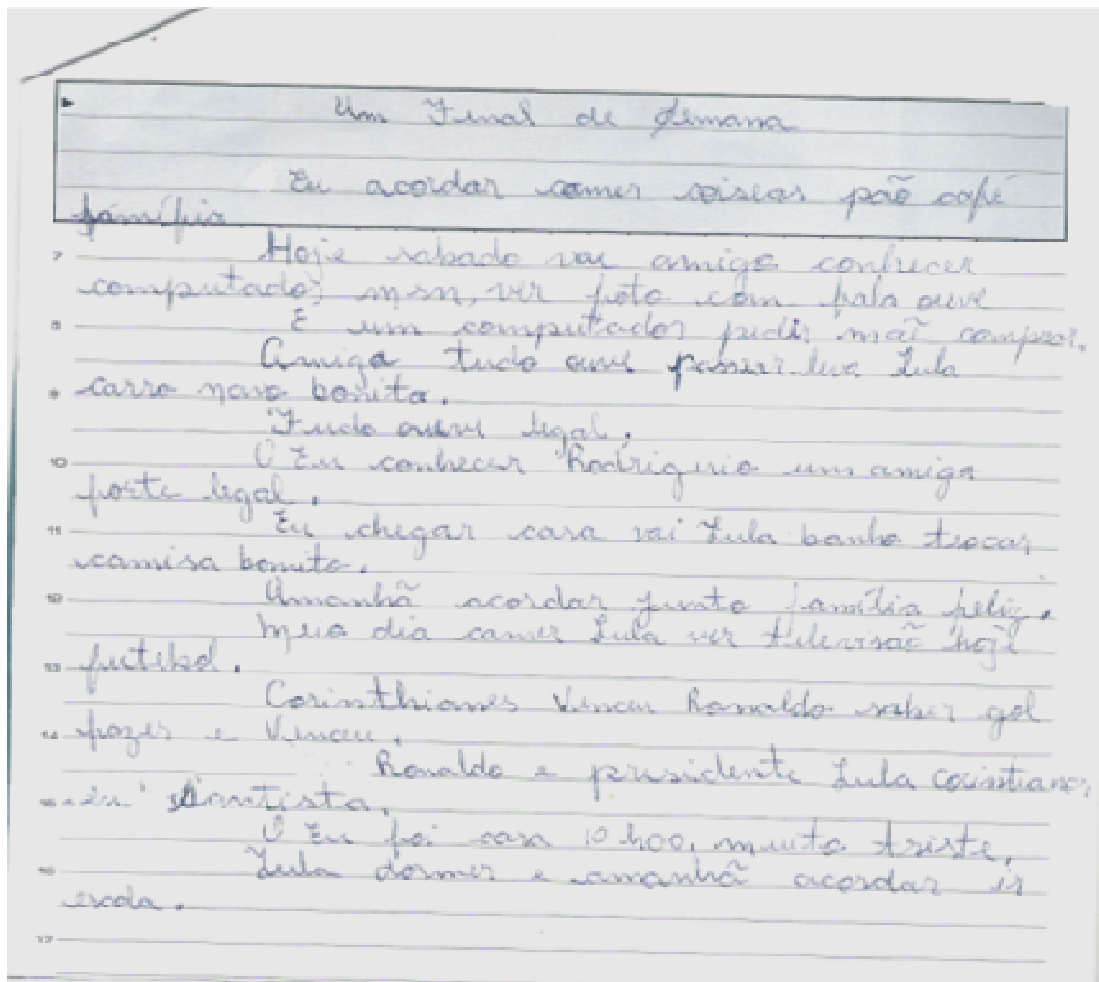 Um Final de Semana
Eu acordar comer coiseas pão café
família
7 Hoje sabado vai amigo conhecer
computador msn, ver foto com fala ouve
8 E um computador pedir maĩ comprar.
Amiga tudo ouve passear leva Lula
9 carro novo bonito.
Tudo ouve legal.
10 O Eu conhecer Rodriguio um amigo
forte legal.
11 Eu chegar casa vai Lula banho trocar
camisa bonito.
12 Amanhã acordar junto família feliz.
Meio dia comer Lula ver televisaõ hoje
13 futebol.
Corinthianes Venceu Ronaldo saber gol
14 fazer e Venceu.
Ronaldo e presidente Lula
15 eu Santista.
O Eu foi casa 10 h00, muito triste.
16 Lula dormer e amanhã acordar ir
escola.
17